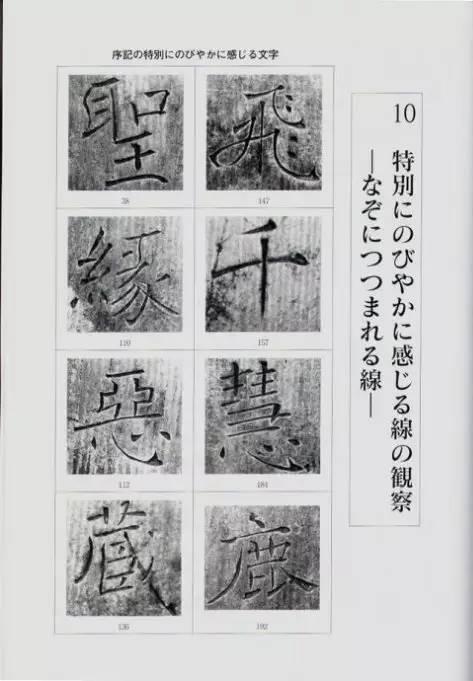 10 特別にのびやかに感じる線の観察
―なぞにつつまれる線―
序記の特別にのびやかに感じる文字
飛
147
聖
38
千
157
縁
110
慧
184
惡
112
鹿
192
蔵
136